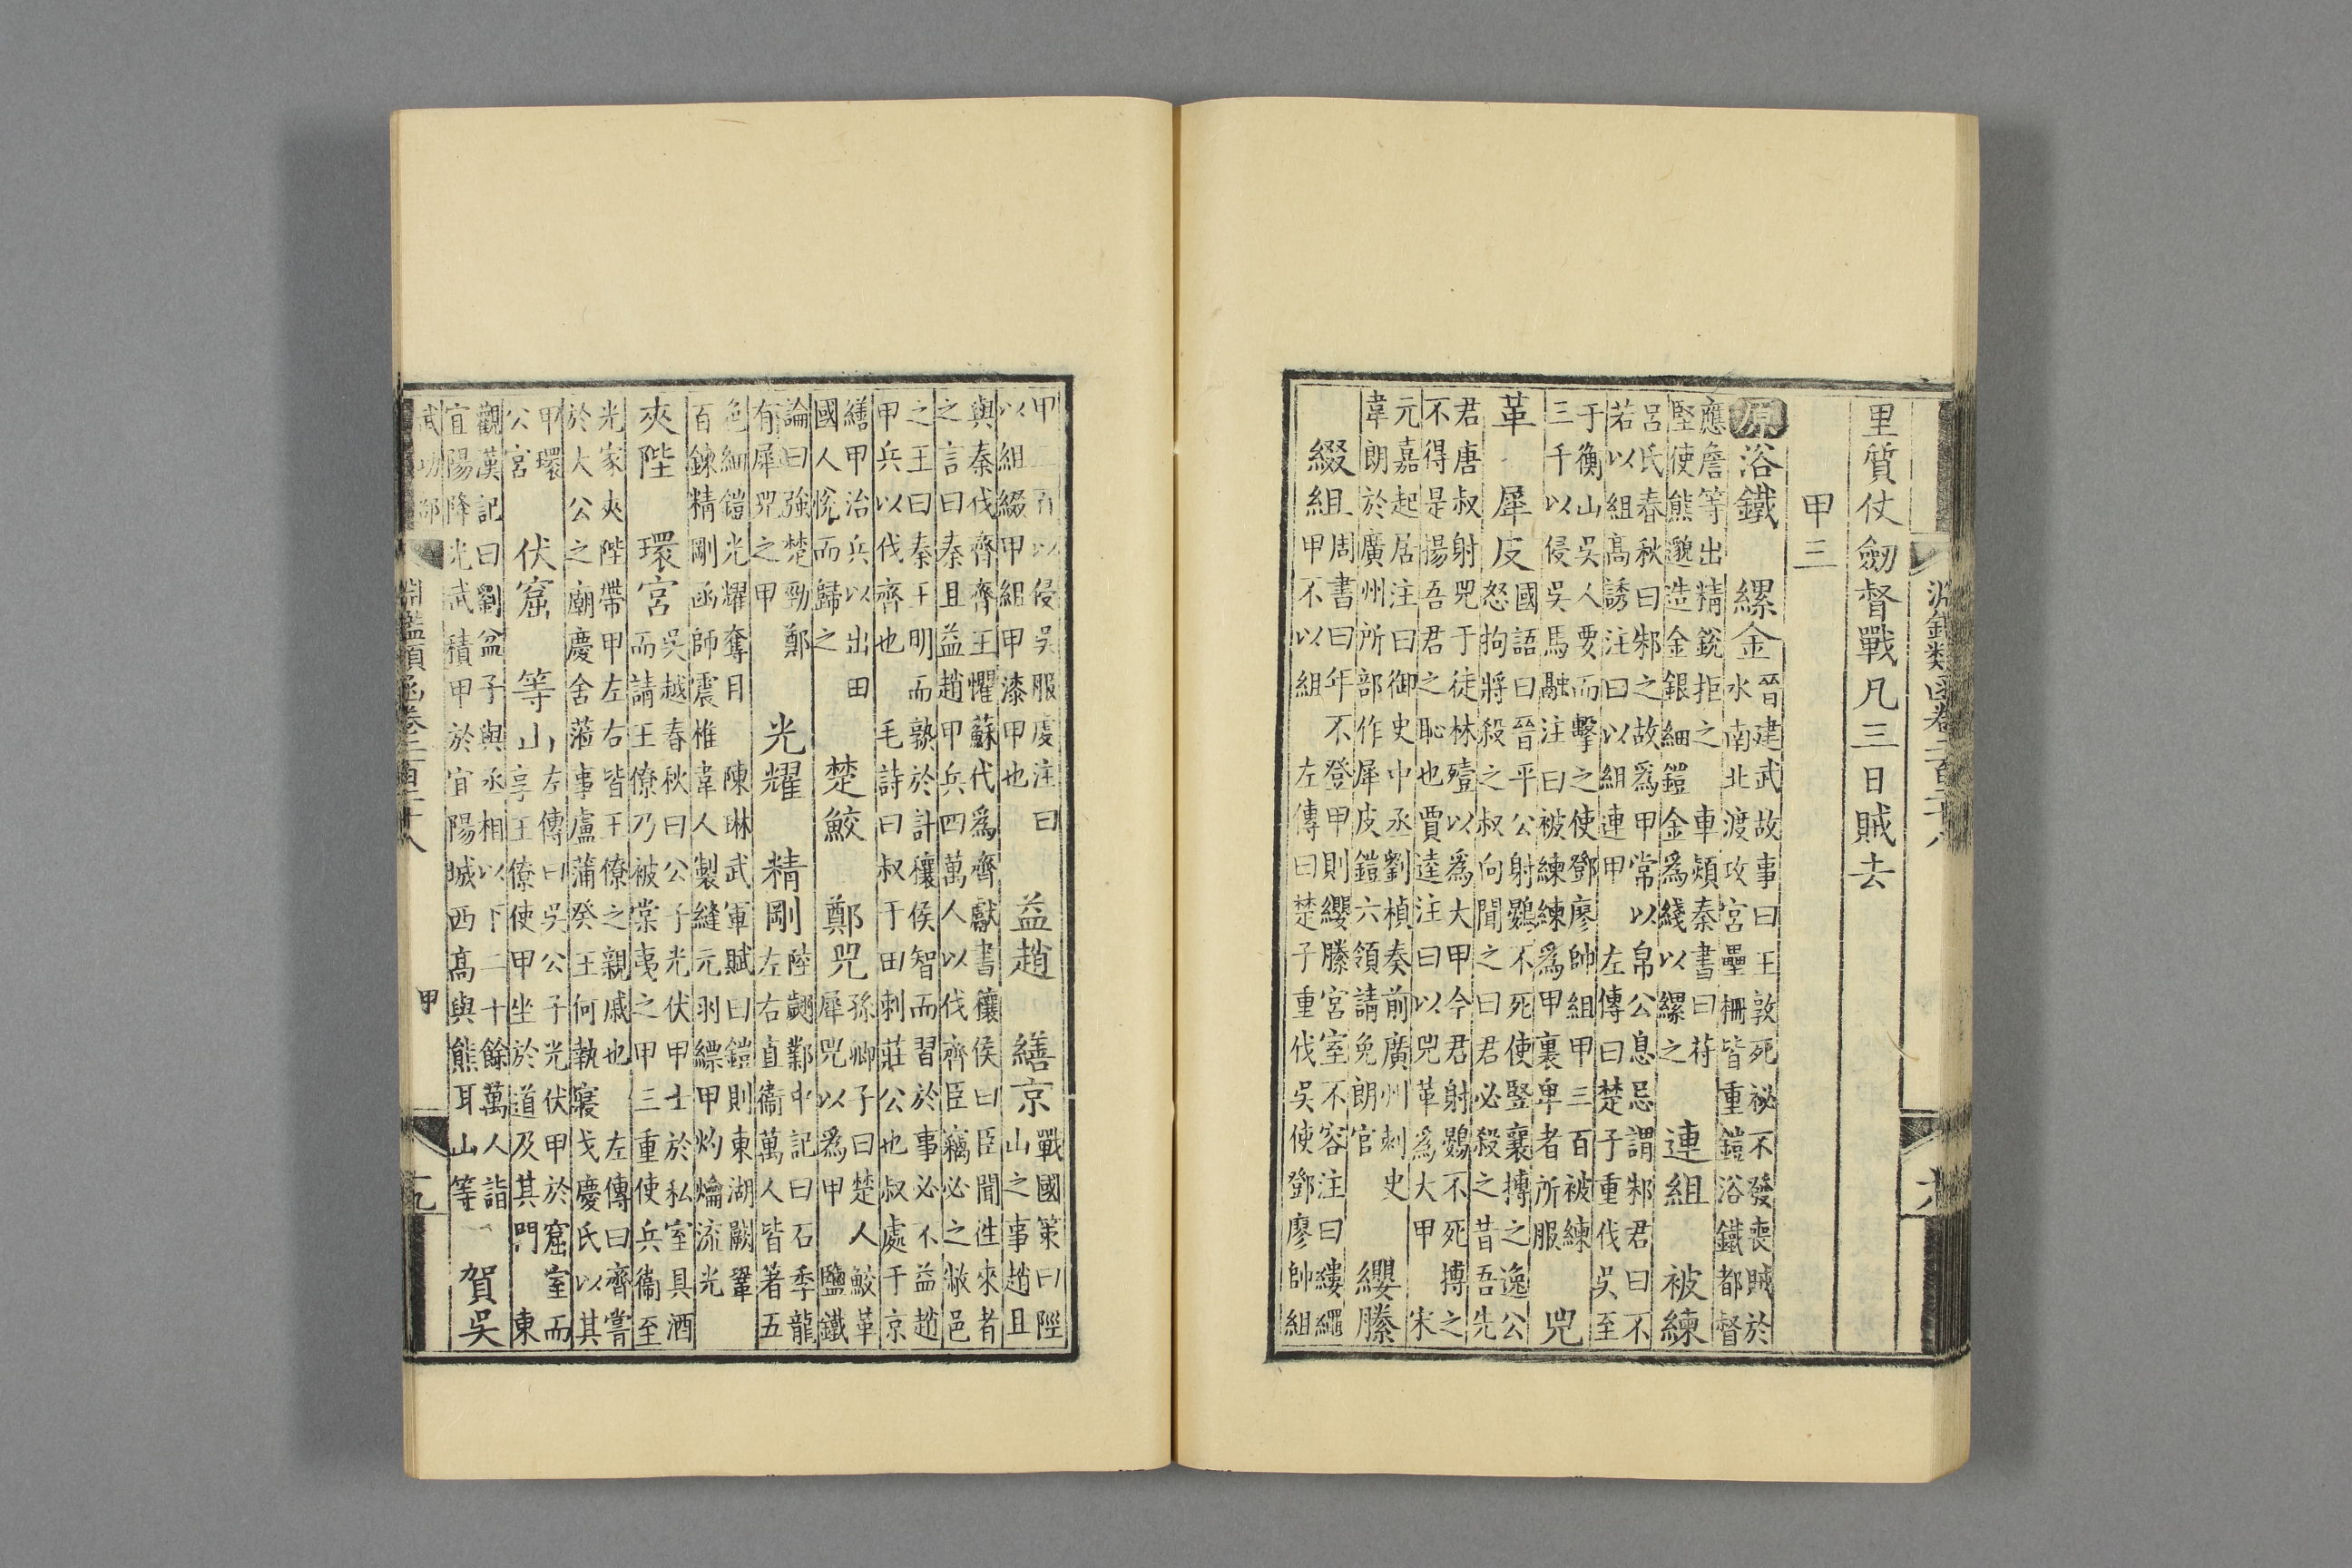 淵鑑類函卷二百二十八
里質仗劒督戰凡三日賊去
甲三
原浴鐵 縲金 晉建武故事曰王敦死祕不發喪賊於
水南北渡攻宮壘柵皆重鎧浴鐵都督
應詹等出精銳拒之 車頻秦書曰苻
堅使熊邈造金銀細鎧金爲綫以縲之 連組 被練
呂氏春秋曰邾之故爲甲常以帛公息忌謂邾君曰不
若以組高誘注曰以組連甲 左傳曰楚子重伐吳至
于衡山吳人要而擊之使鄧廖帥組甲三百被練
三千以侵吳馬融注曰被練練爲甲裏卑者所服 兕
革 犀皮 國語曰晉平公射鷃不死使豎襄搏之逸公
怒拘將殺之叔向聞之曰君必殺之昔吾先
君唐叔射兕于徒林殪以爲大甲今君射鷃不死搏之
不得是揚吾君之恥也賈逵注曰以兕革爲大甲 宋
元嘉起居注曰御史中丞劉楨奏前廣州刺史
韋朗於廣州所部作犀皮鎧六領請免朗官 纓縢
綴組 周書曰年不登甲則纓縢宮室不容注曰縷繩
甲不以組 左傳曰楚子重伐吳使鄧廖帥組
甲三百以侵吳服虔注曰
以組綴甲組甲漆甲也 益趙 繕京 戰國策曰陘
山之事趙且
與秦伐齊齊王懼蘇代爲齊獻書穰侯曰臣聞往來者
之言曰秦且益趙甲兵四萬人以伐齊臣竊必之敝邑
之王曰秦王明而孰於計穰侯智而習於事必不益趙
甲兵以伐齊也 毛詩曰叔于田刺莊公也叔處于京
繕甲治兵以出田
國人悅而歸之 楚鮫 鄭兕 孫卿子曰楚人鮫革
犀兕以爲甲 鹽鐵
論曰強楚勁鄭
有犀兕之甲 光耀 精剛 陸翽鄴中記曰石季龍
左右直衞萬人皆著五
色細鎧光耀奪目 陳琳武軍賦曰鎧則東湖闕鞏
百鍊精剛函師震椎韋人製縫元羽縹甲灼爚流光
夾陛 環宮 吳越春秋曰公子光伏甲士於私室具酒
而請王僚乃被棠夷之甲三重使兵衞至
光家夾陛帶甲左右皆王僚之親戚也 左傳曰齊嘗
於大公之廟慶舍蒞事盧蒲癸王何執寢戈慶氏以其
甲環
公宮 伏窟 等山 左傳曰吳公子光伏甲於窟室而
享王僚使甲坐於道及其門 東
觀漢記曰劉盆子與丞相以下二十餘萬人詣
宜陽降光武積甲於宜陽城西高與熊耳山等 賀吳
武功部
淵鑑類函卷二百二十八
甲